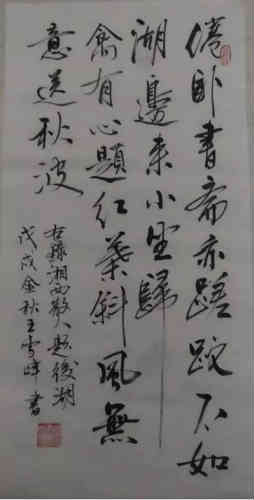 倦卧書齋亦蹉跎不如
湖邊来小坐歸
禽有心題紅葉斜風無
意送秋波
右錄湘西散人題後湖
戊戌金秋王雪峰書